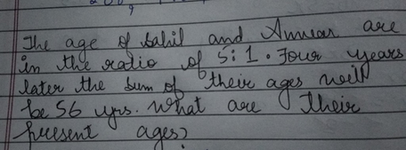 The age of Sahil and Anwar are
in the ratio of 5:1. Four years
later the sum of their ages will
be 56 yrs. What are their
present ages?